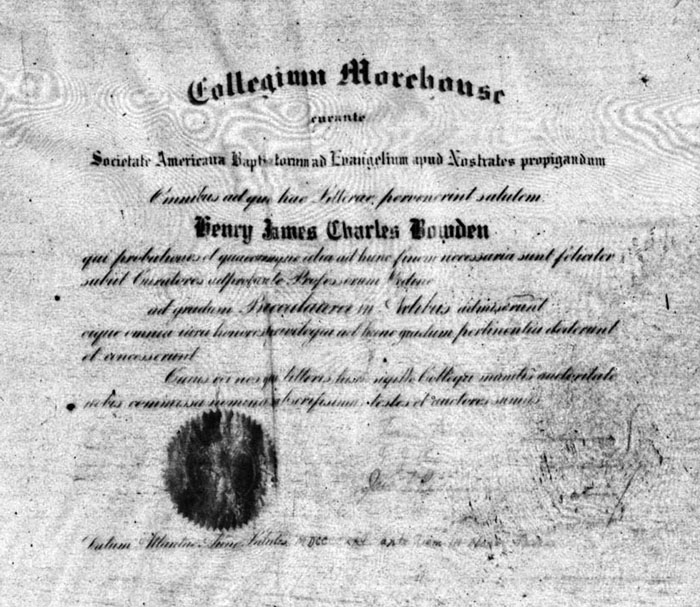 Collegium Morehouse
curante
Societate Americana Baptistorum ad Evangelium apud Nostrates propigandum
Omnibus ad quo hae Litterae pervenerint salutem
Henry James Charles Bowden
qui probationes et quaecumque alia ad hunc finem necessaria sunt feliciter
subiit Curatores adprobante Professorum Ordine
ad gradum Baccalaurei in Artibus admiserunt
eique omnia iura honores privilegia ad hunc gradum pertinentia dederunt
et concesserunt
Cuius rei nos qui litteris hisce sigillo Collegii munitis auctoritate
nobis commissa nomina subscripsimus testes et auctores sumus
Datum Atlantae Anno Salutis MDCCC ante diem